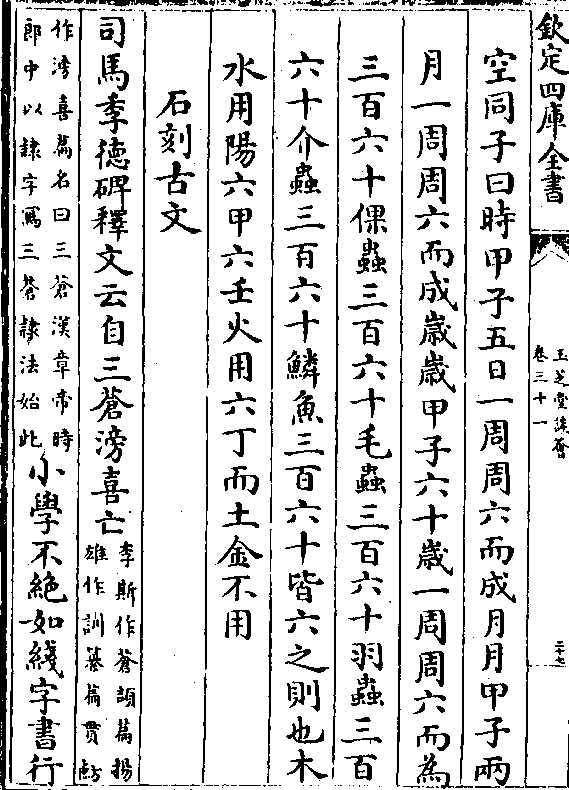 欽定四庫全書
玉芝堂談薈
卷三十一
二十七
空同子曰時甲子五日一周周六而成月月甲子兩
月一周周六而成歲歲甲子六十歲一周周六而為
三百六十倮蟲三百六十毛蟲三百六十羽蟲三百
六十介蟲三百六十鱗魚三百六十皆六之則也木
水用陽六甲六壬火用六丁而土金不用
石刻古文
司馬季德碑釋文云自三蒼滂喜亡
李斯作蒼頡篇揚
雄作訓纂篇貫魴
作滂喜篇名曰三蒼漢章帝時
郎中以隸字寫三蒼隸法始此
小學不絕如綫字書行